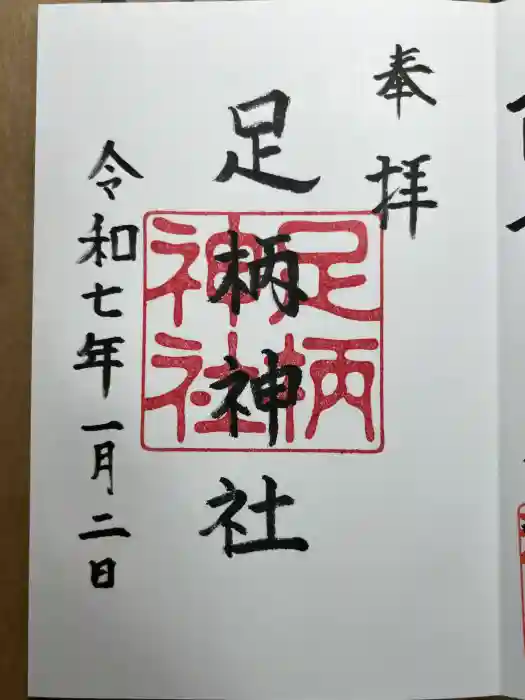 奉拝
足柄神社
足柄神社
令和七年一月二日